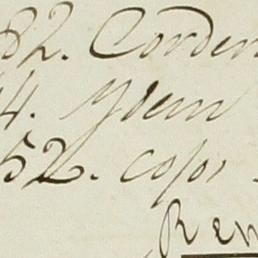 82. Corden
4. Ydem
52. copi
Rem